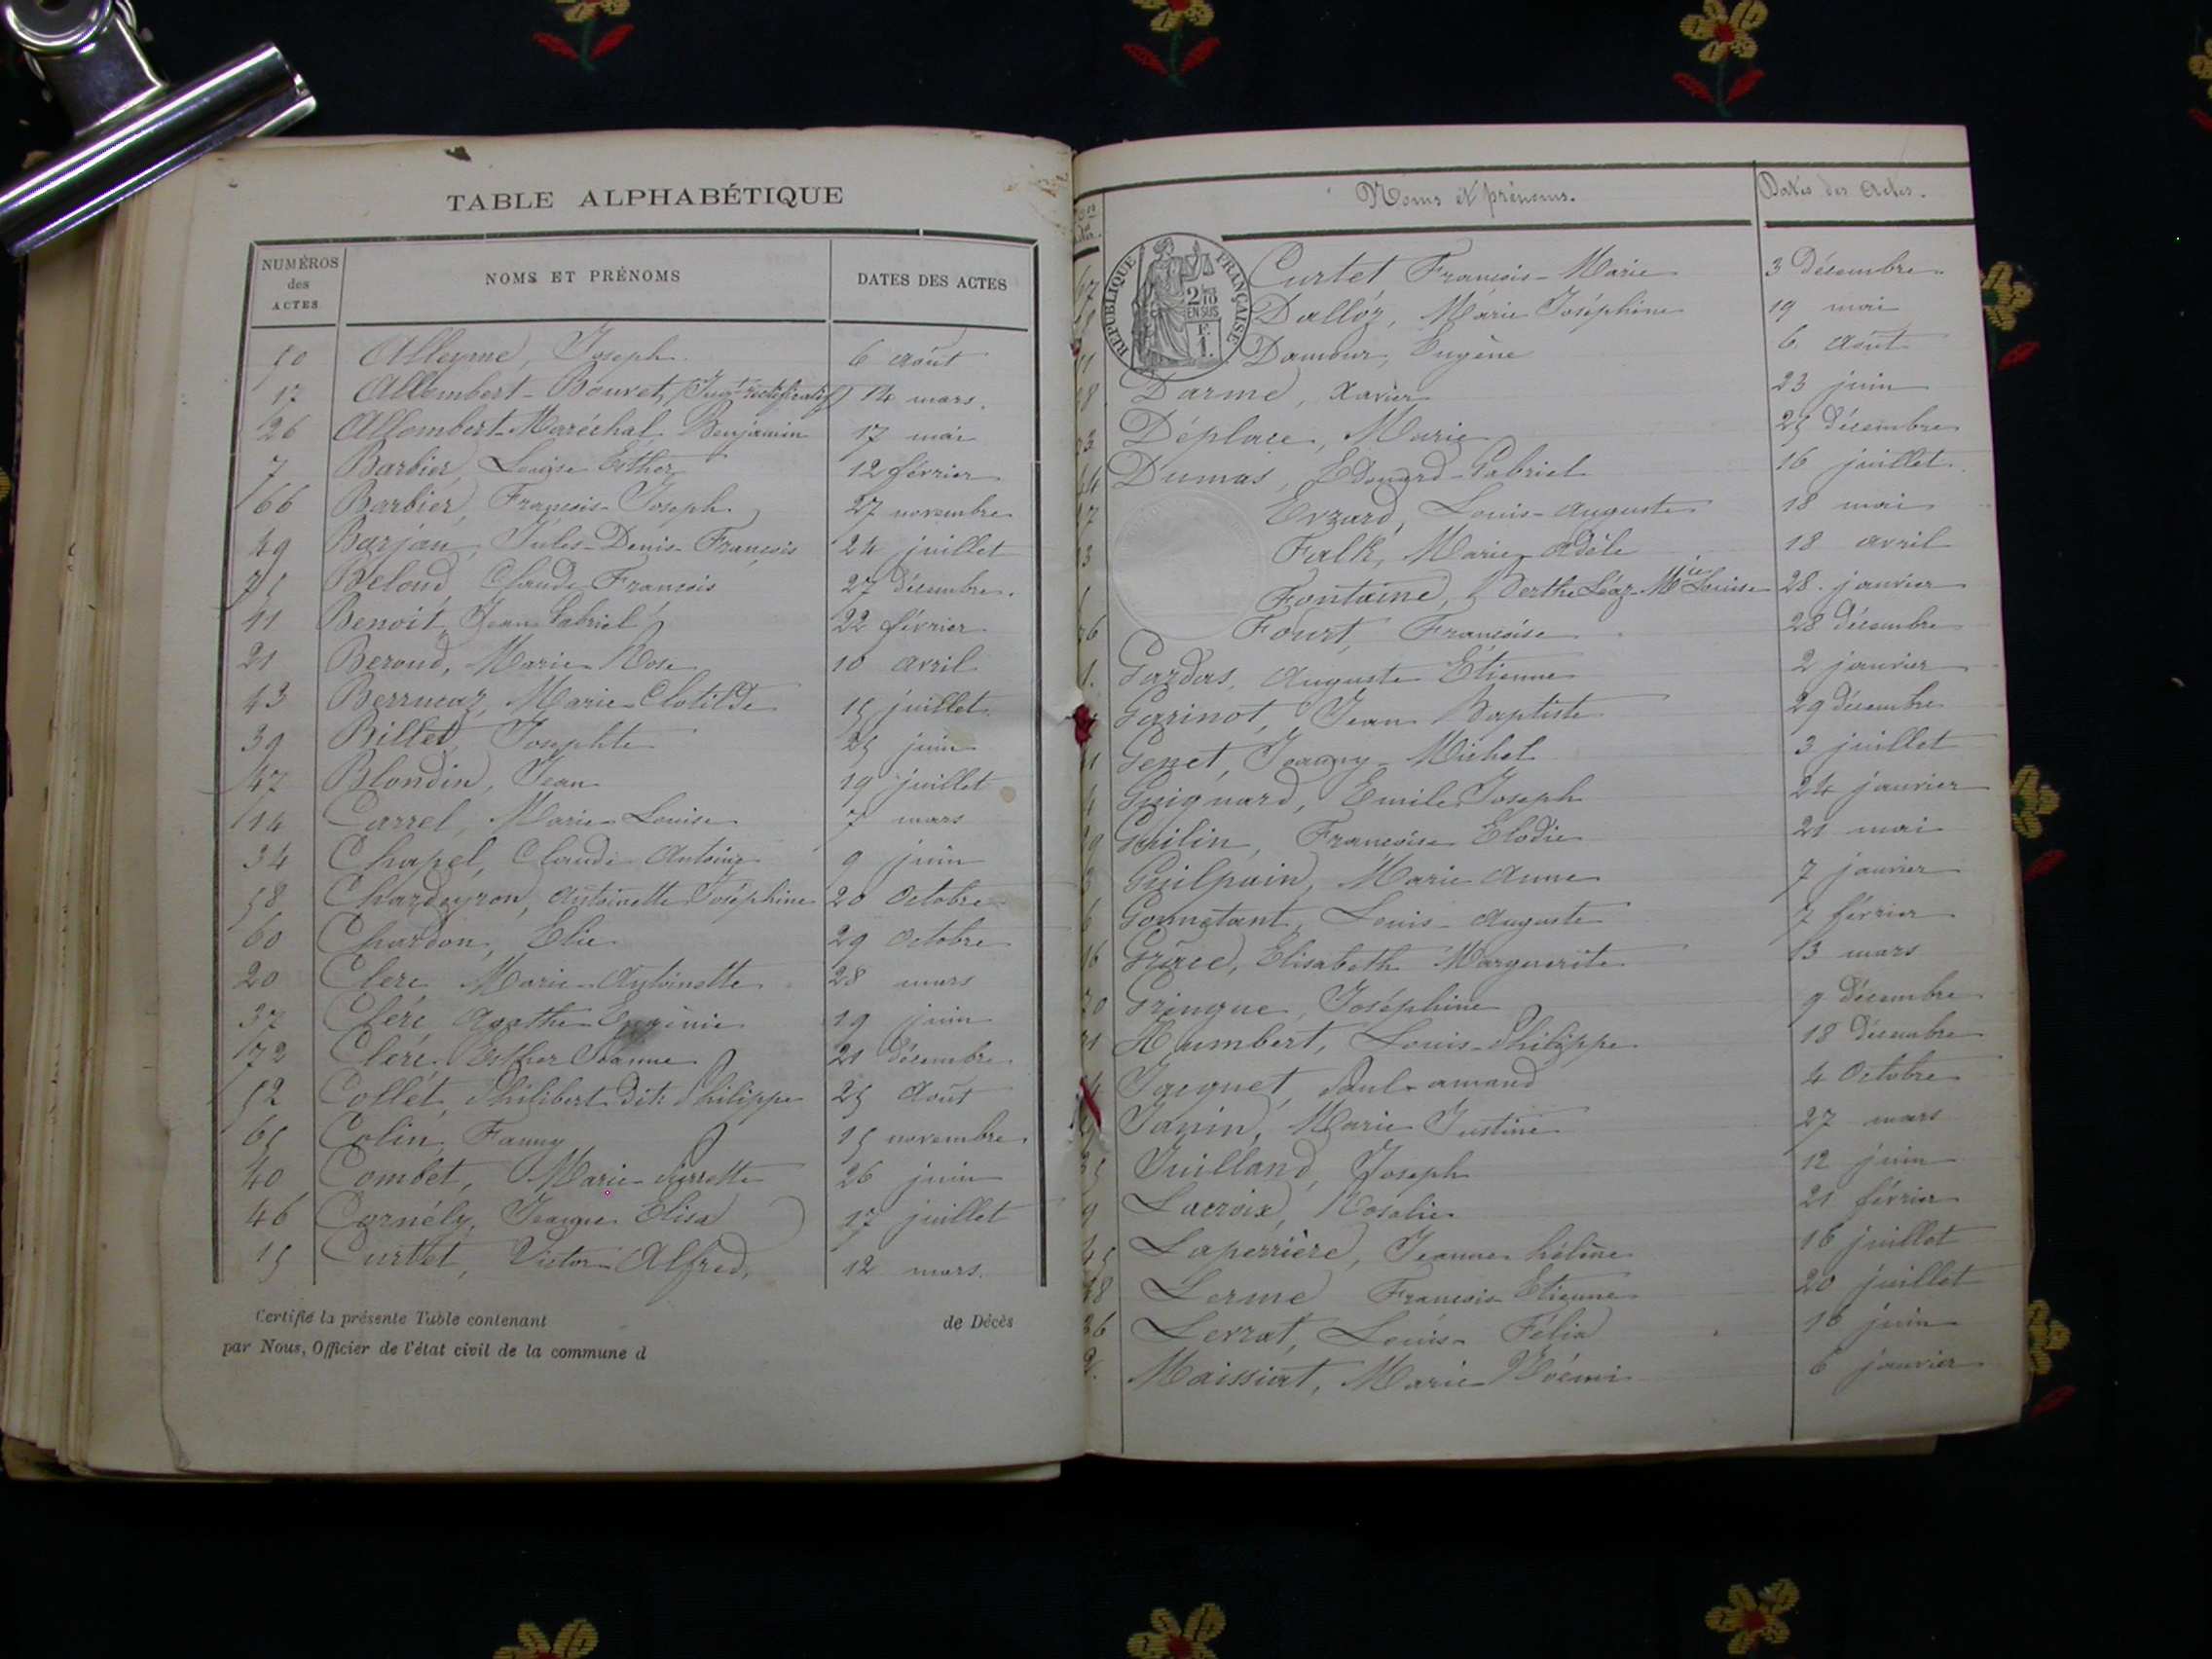 TABLE ALPHABÉTIQUE
NUMÉROS des ACTES NOMS ET PRÉNOMS DATES DES ACTES
50 Alleyme, Joseph 6 août
17 Allombert-Bouvet, (Jugt rectificatif) 14 mars
26 Allombert-Maréchal, Benjamin 17 mai
7 Barbier, Louise Esther 12 février
66 Barbier, François Joseph 27 novembre
49 Barjau, Jules-Denis-François 24 juillet
75 Beloud Claude François 27 décembre
11 Benoit, Jean Gabriel 22 février
21 Beroud, Marie Rose 10 avril
43 Berrucaz, Marie-Clotilde 15 juillet
39 Billet, Josephte 25 juin
47 Blondin, Jean 19 juillet
14 Carrel, Marie-Louise 7 mars
34 Chapel, Claude Antoine 9 juin
58 Chardeyron, Antoinette Joséphine 20 octobre
60 Chardon, Elie 29 octobre
20 Clerc Marie-Antoinette 28 mars
37 Clerc Agathe-Eugénie 19 juin
72 Clerc, Esther Jeanne 21 décembre
52 Collet, Philibert dit Philippe 25 août
65 Colin, Fanny 15 novembre
40 Combet, Marie-Pierrette 26 juin
46 Cornély, Jeanne Elisa 17 juillet
15 Curtet, Victor-Alfred 12 mars
Certifié la présente Table contenant de Décès
par Nous, Officier de l'état civil de la commune d
Noms et prénoms. Dates des Actes.
RÉPUBLIQUE FRANÇAISE
2/10 EN SUS
1 F.
Curtet, François-Marie 3 décembre
Dalloz, Marie Joséphine 19 mai
Damour, Eugène 6 août
Darme, Xavier 23 juin
Déplace, Marie 25 décembre
Dumas, Edouard-Gabriel 16 juillet
Evzard, Louis-Auguste 18 mai
Falk, Marie Adèle 18 avril
Fontaine, Berthe Léa Mie Louise 28 janvier
Fourt, Françoise 28 décembre
1. Gardas, Auguste Étienne 2 janvier
Garinot, Jean Baptiste 29 décembre
Genet, Joanny-Michel 3 juillet
4 Guignard, Emile Joseph 24 janvier
Guilin, Françoise Elodie 21 mai
3 Guilpain, Marie Anne 7 janvier
6 Gonnetant, Louis-Auguste 7 février
16 Grâce, Elisabeth Marguerite 13 mars
70 Gringue, Joséphine 9 décembre
71 Humbert, Louis-Philippe 18 décembre
Jacquet, Paul-Amand 4 octobre
Janin, Marie Justine 27 mars
35 Juilland, Joseph 12 juin
9 Lacroix, Rosalie 21 février
45 Laperrière, Jeanne hélène 16 juillet
48 Lerme François Etienne 20 juillet
36 Lerrat, Louis-Félix 16 juin
2. Maissiat, Marie Noémi 6 janvier